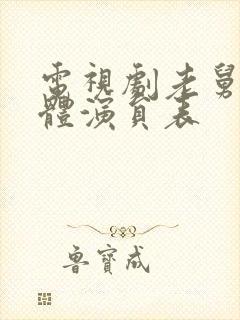 電視劇老舅
體演員表
魯寶成